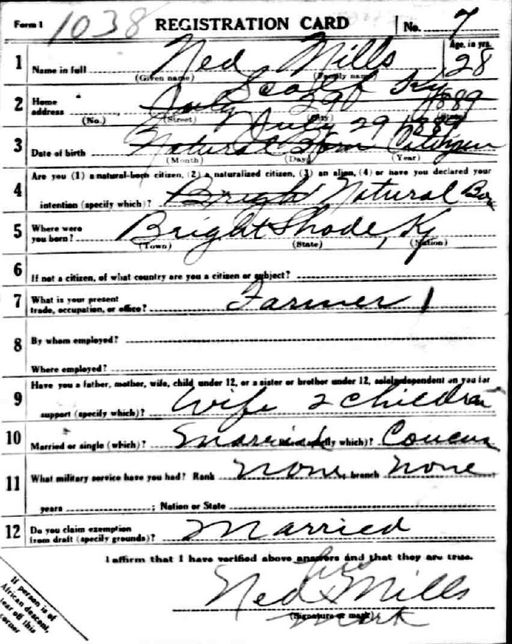 Form 1 1038 REGISTRATION CARD No. 7
1 Name in full Ned Mills Age, in yrs. 28
(Given name) (Family name)
Scalf Ky
2 Home address July 29 1889
(No.) (Street) (City) (State)
July 29 1889
3 Date of birth Natural Born Citizen
(Month) (Day) (Year)
Are you (1) a natural-born citizen, (2) a naturalized citizen, (3) an alien, (4) or have you declared your
4 intention (specify which)? Bright Natural Bor
5 Where were you born? Bright Shade, Ky
(Town) (State) (Nation)
6 If not a citizen, of what country are you a citizen or subject?
7 What is your present trade, occupation, or office? Farmer 1
8 By whom employed?
Where employed?
Have you a father, mother, wife, child under 12, or a sister or brother under 12, solely dependent on you for
9 support (specify which)? Wife 2 children
10 Married or single (which)? Married Race (specify which)?
11 What military service have you had? Rank none branch none
years ; Nation or State
12 Do you claim exemption from draft (specify grounds)? Married
I affirm that I have verified above answers and that they are true.
his
Ned x Mills
(Signature or mark)
mark
If person is of
African descent,
tear off this
corner